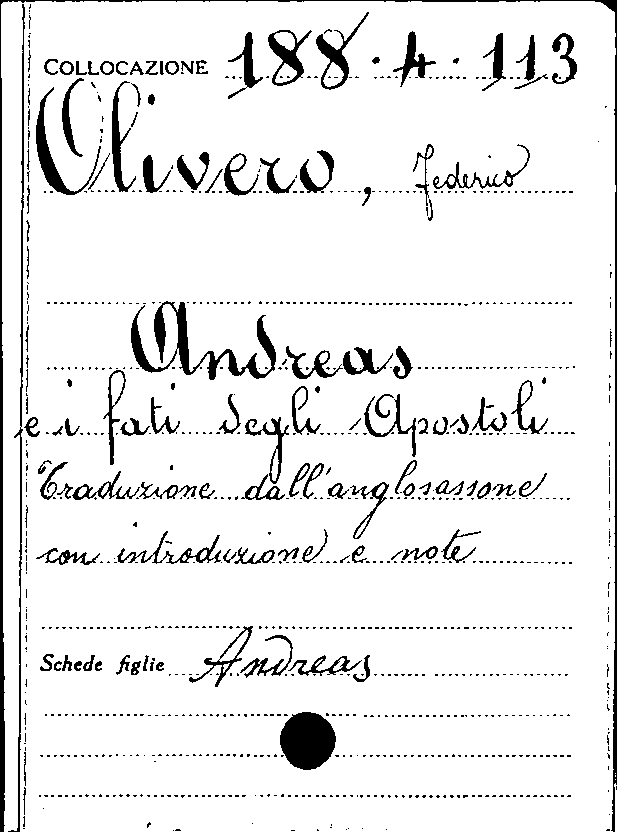 COLLOCAZIONE 188.4.113
Olivero, Federico
Andreas
e i fati degli Apostoli
Traduzione dall'anglosassone
con introduzione e note
Schede figlie Andreas